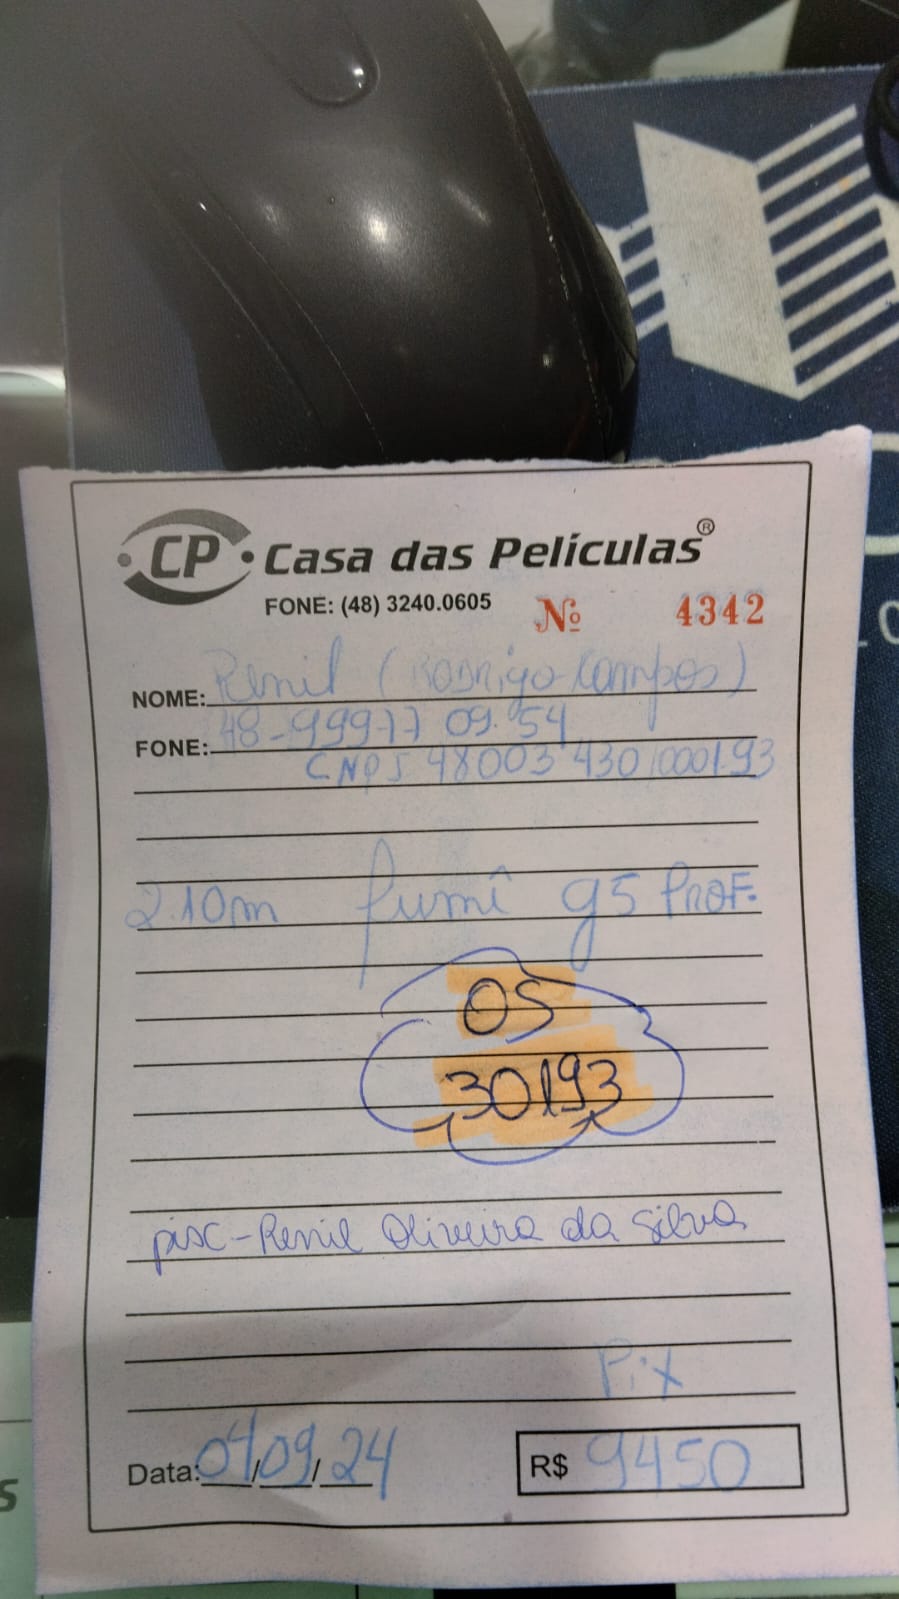 CP Casa das Películas®
FONE: (48) 3240.0605 Nº 4342
NOME: Renil (Rodrigo Campos)
FONE: 48-99977 09.54
CNPJ 48003 430/0001.93
2.10m fumê g5 Prof.
OS
30193
Renil Oliveira da Silva
Pix
Data: 04/09/24 R$ 9450